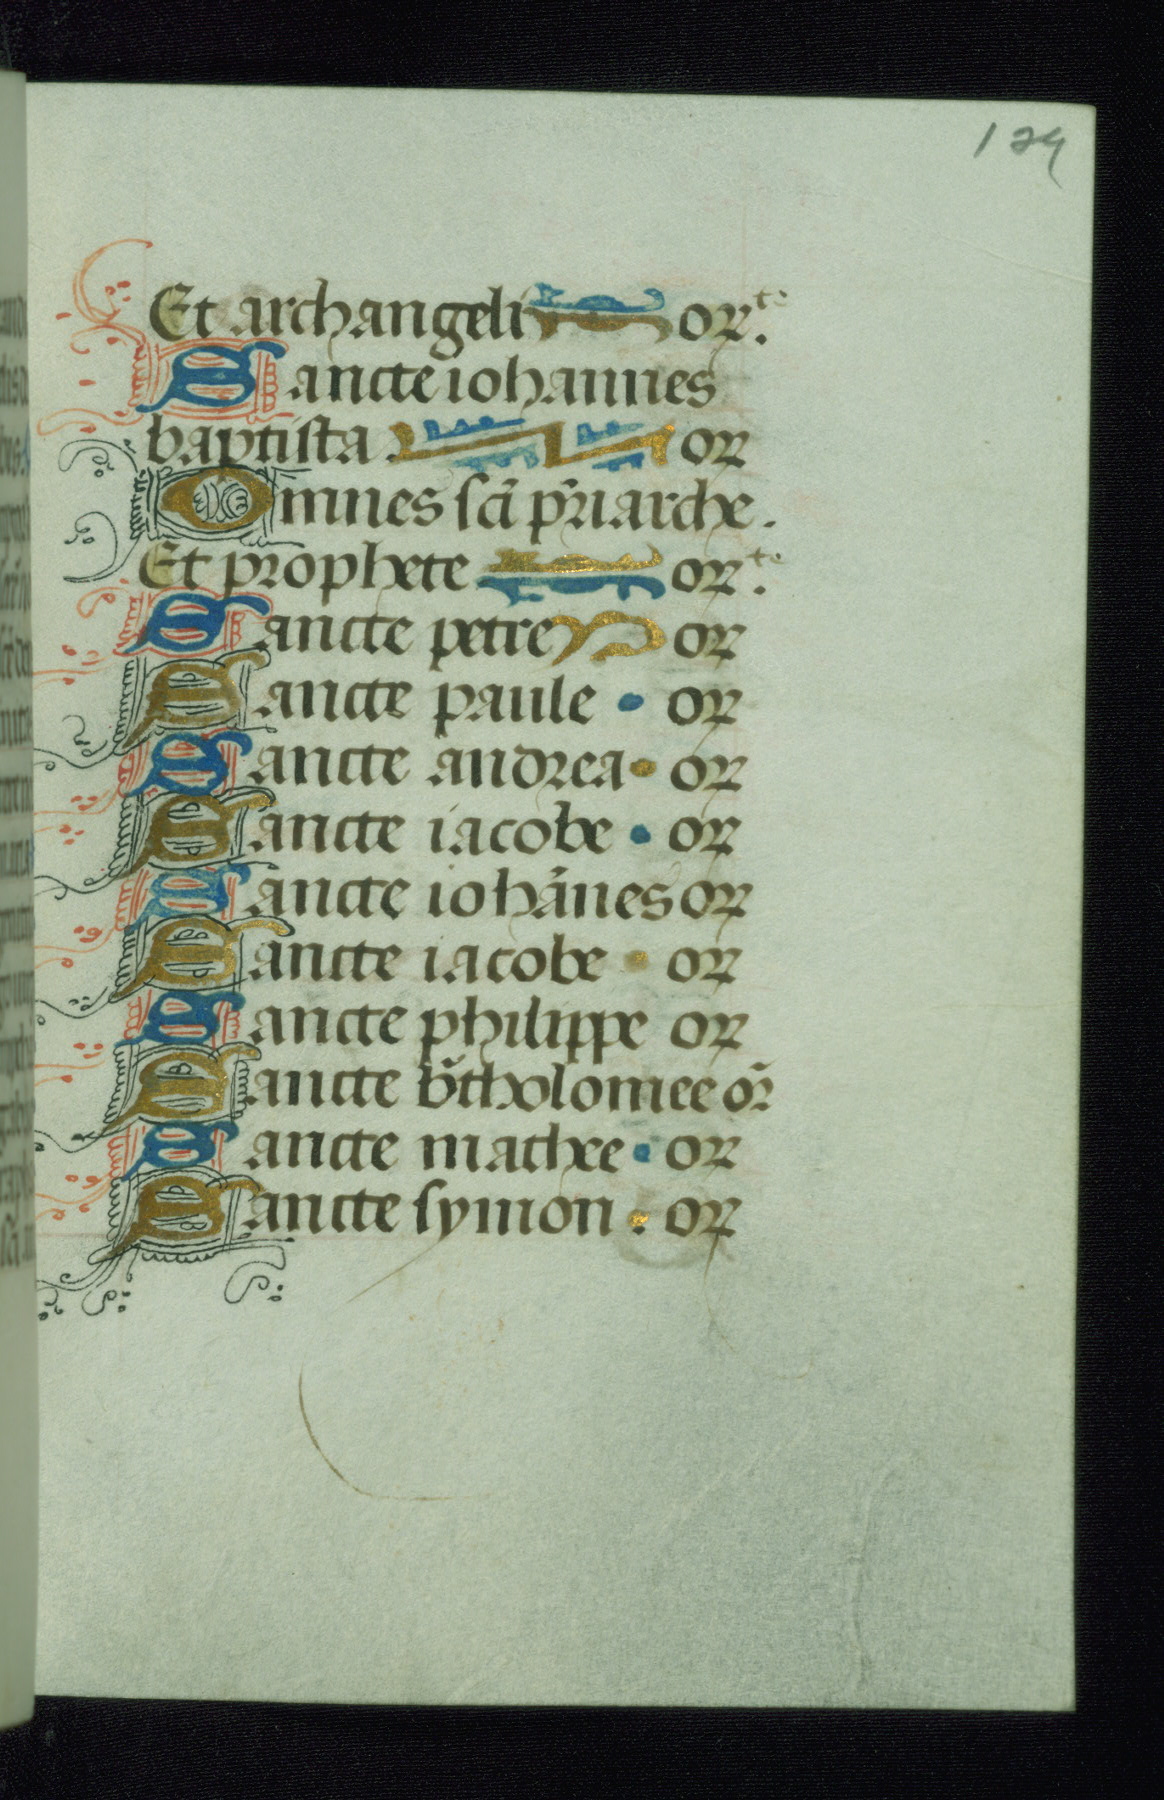 124
Et archangeli or.te
Sancte iohannes
baptista or
Omnes scī pr̄iarche.
Et prophete or.te
Sancte petre or
Sancte paule • or
Sancte andrea • or
Sancte iacobe • or
Sancte iohānes or
Sancte iacobe • or
Sancte philippe or
Sancte br̄tholomee or̄
Sancte mathee • or
Sancte symon . or